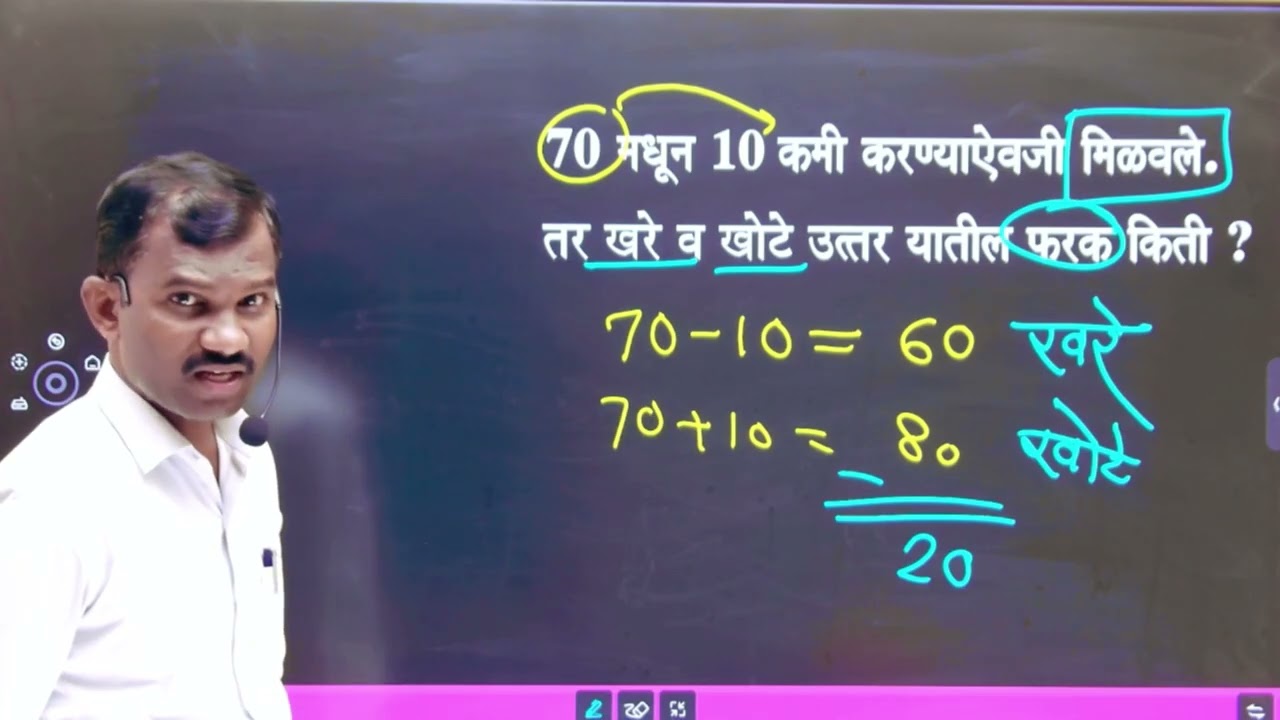 70 मधून 10 कमी करण्याऐवजी मिळवले.
तर खरे व खोटे उत्तर यातील फरक किती ?
70-10= 60 खरे
70+10= 80 खोटे
20